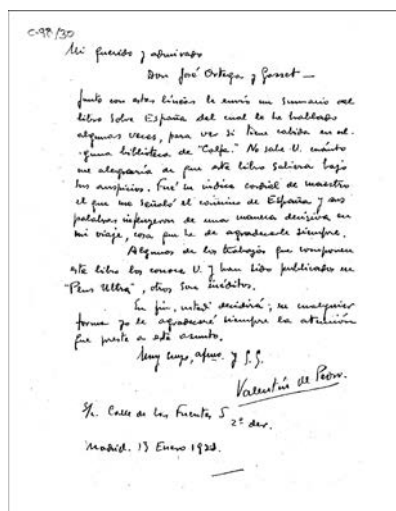 C-98/30
Mi querido y admirado
Don José Ortega y Gasset —
Junto con estas líneas le envío un sumario del
libro sobre España del cual le he hablado
algunas veces, para ver si tiene cabida en al-
guna biblioteca de "Calpe". No sabe U. cuánto
me alegraría de que este libro saliera bajo
sus auspicios. Fué su índice cordial de maestro
el que me señaló el camino de España y sus
palabras influyeron de una manera decisiva en
mi viaje, cosa que he de agradecerle siempre.
Algunos de los trabajos que componen
este libro los conoce U. y han sido publicados en
"Plus Ultra", otros son inéditos.
En fin, usted decidirá; en cualquier
forma yo le agradeceré siempre la atención
que preste a este asunto.
Muy suyo, afmo. y S.S.
Valentín de Pedro.
S/c. Calle de las Fuentes 5
2º der.
Madrid. 13 Enero